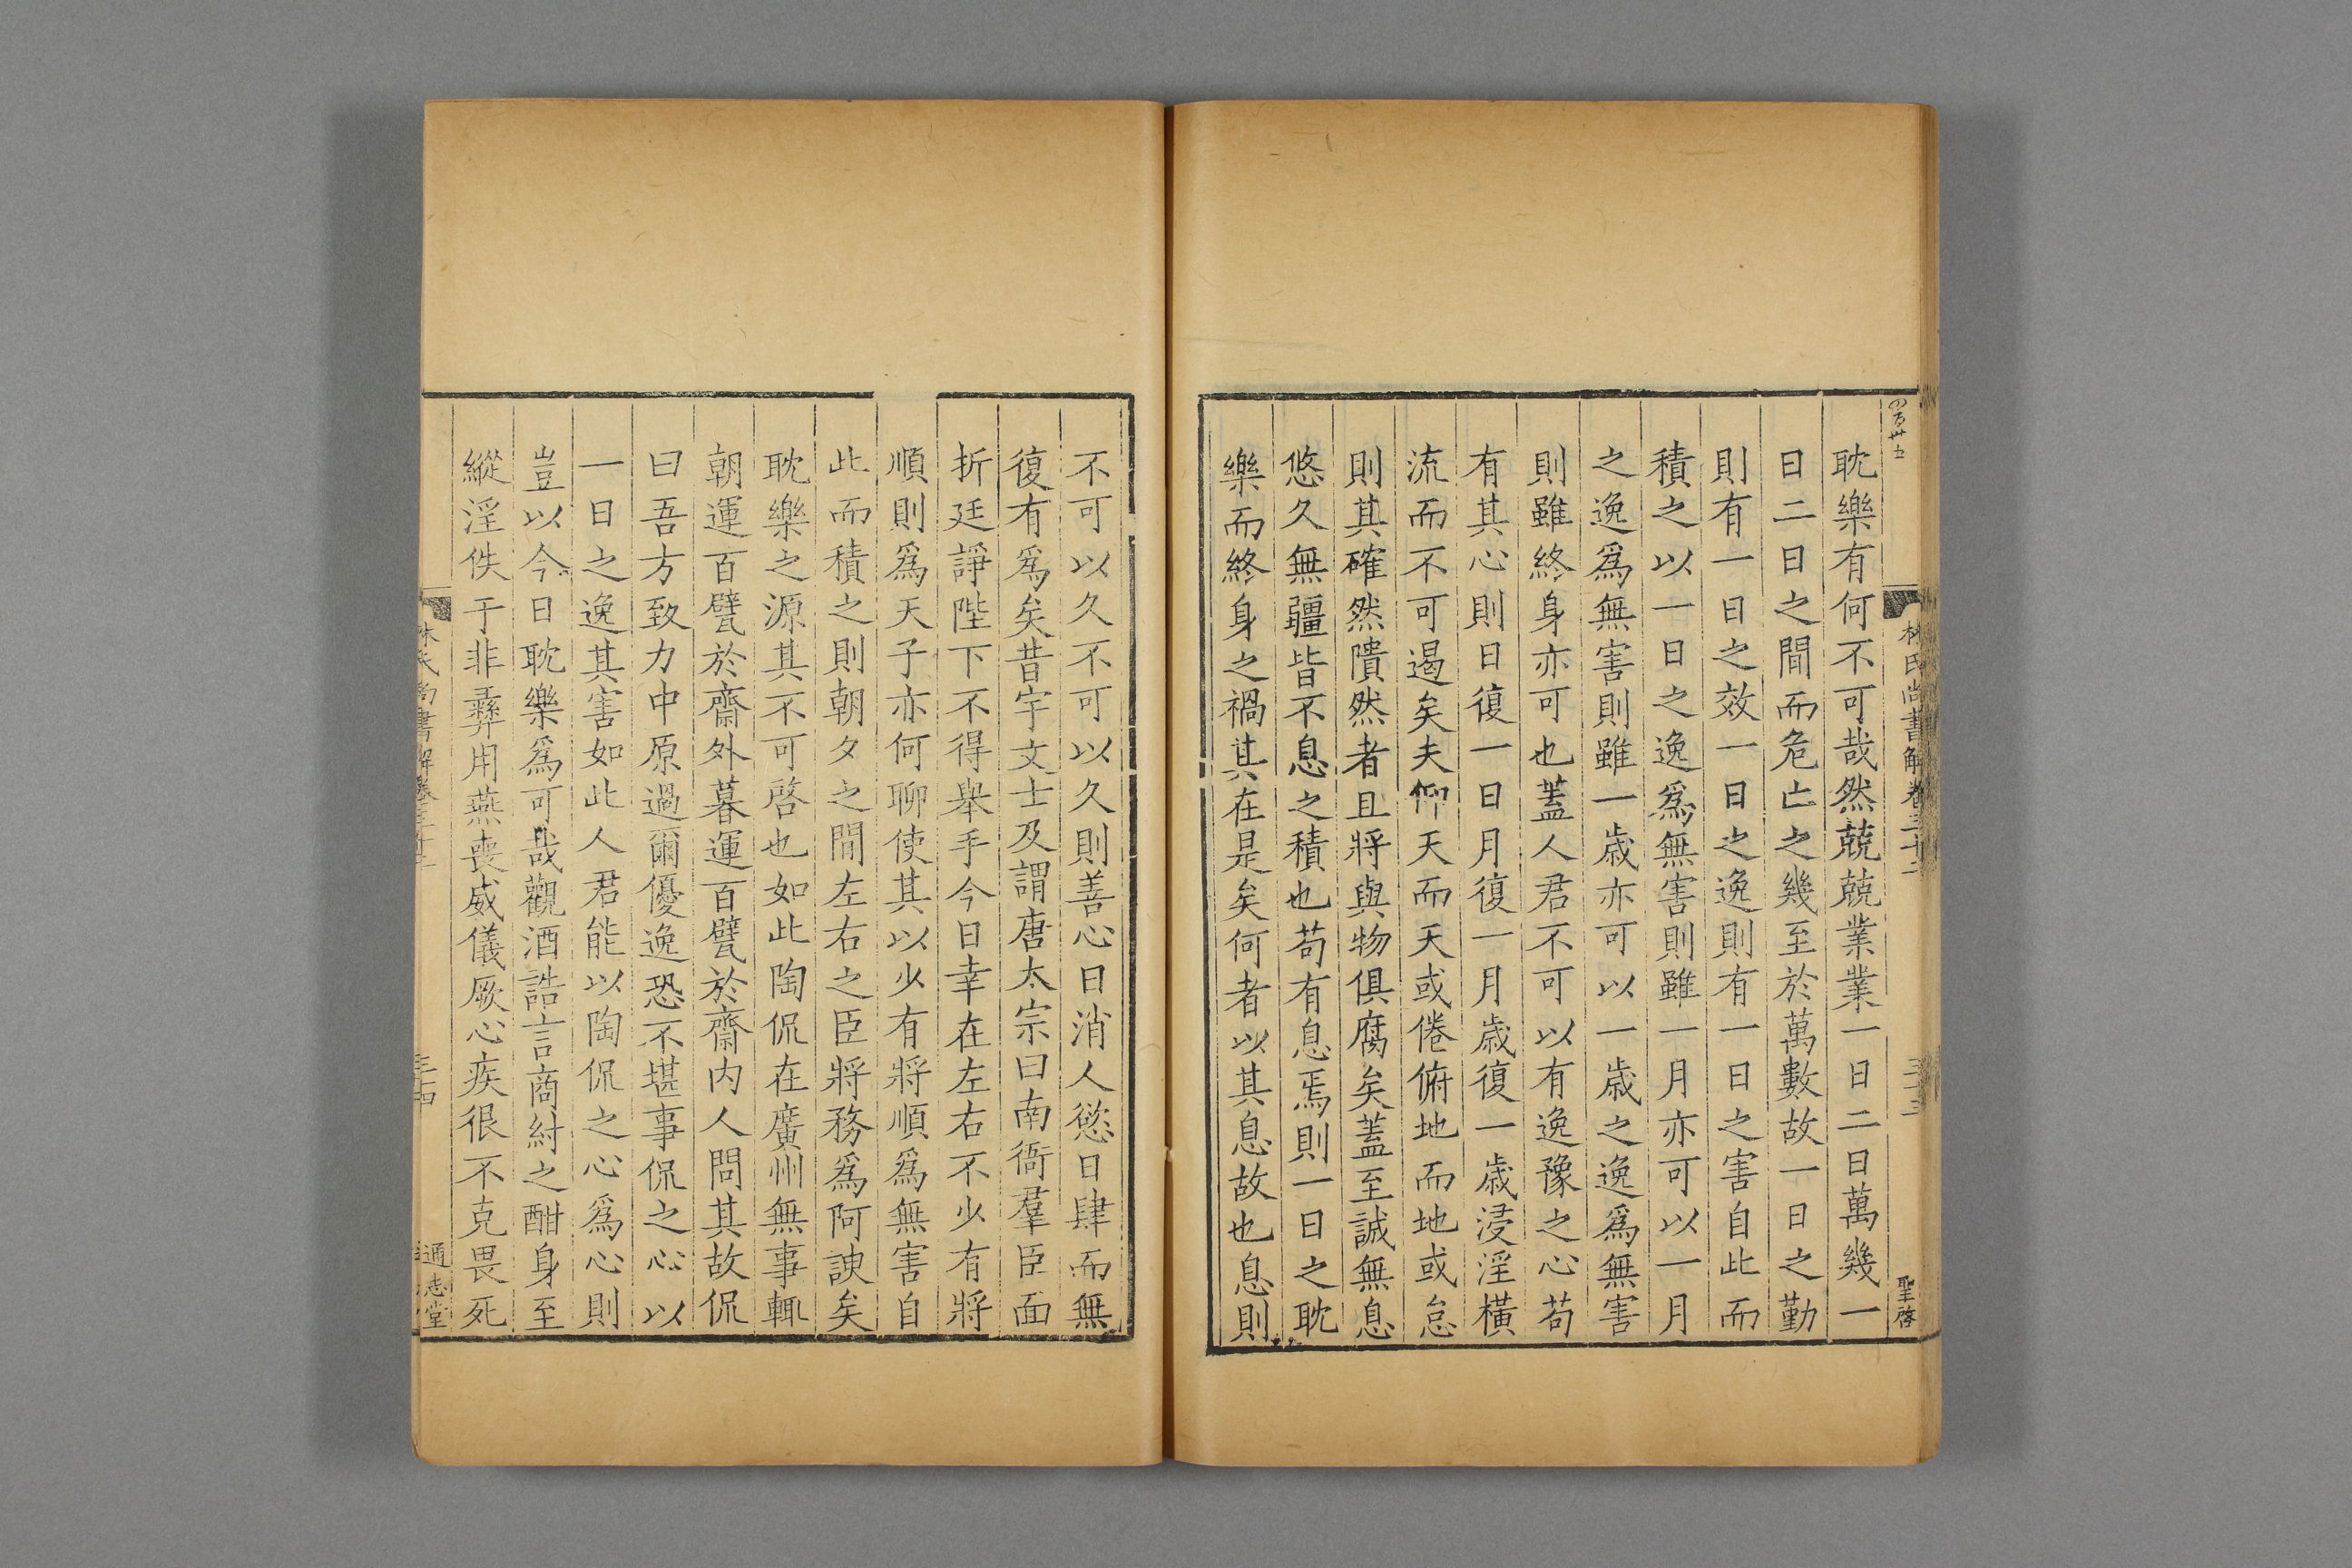 耽樂有何不可哉然兢兢業業一日二日萬幾一
日二日之間而危亡之幾至於萬數故一日之勤
則有一日之效一日之逸則有一日之害自此而
積之以一日之逸爲無害則雖一月亦可以一月
之逸爲無害則雖一歲亦可以一歲之逸爲無害
則雖終身亦可也蓋人君不可以有逸豫之心苟
有其心則日復一日月復一月歲復一歲浸淫橫
流而不可遏矣夫仰天而天或倦俯地而地或怠
則其確然隤然者且將與物俱腐矣蓋至誠無息
悠久無疆皆不息之積也苟有息焉則一日之耽
樂而終身之禍其在是矣何者以其息故也息則
不可以久不可以久則善心日消人慾日肆而無
復有爲矣昔宇文士及謂唐太宗曰南衙羣臣面
折廷諍陛下不得舉手今日幸在左右不少有將
順則爲天子亦何聊使其以少有將順爲無害自
此而積之則朝夕之間左右之臣將務爲阿諛矣
耽樂之源其不可啓也如此陶侃在廣州無事輒
朝運百甓於齋外暮運百甓於齋内人問其故侃
曰吾方致力中原過爾優逸恐不堪事侃之心以
一日之逸其害如此人君能以陶侃之心爲心則
豈以今日耽樂爲可哉觀酒誥言商紂之酣身至
縱淫佚于非彝用燕喪威儀厥心疾很不克畏死
林氏尚書解卷三十二
三十三
聖啓
林氏尚書解卷三十二
三十四
通志堂